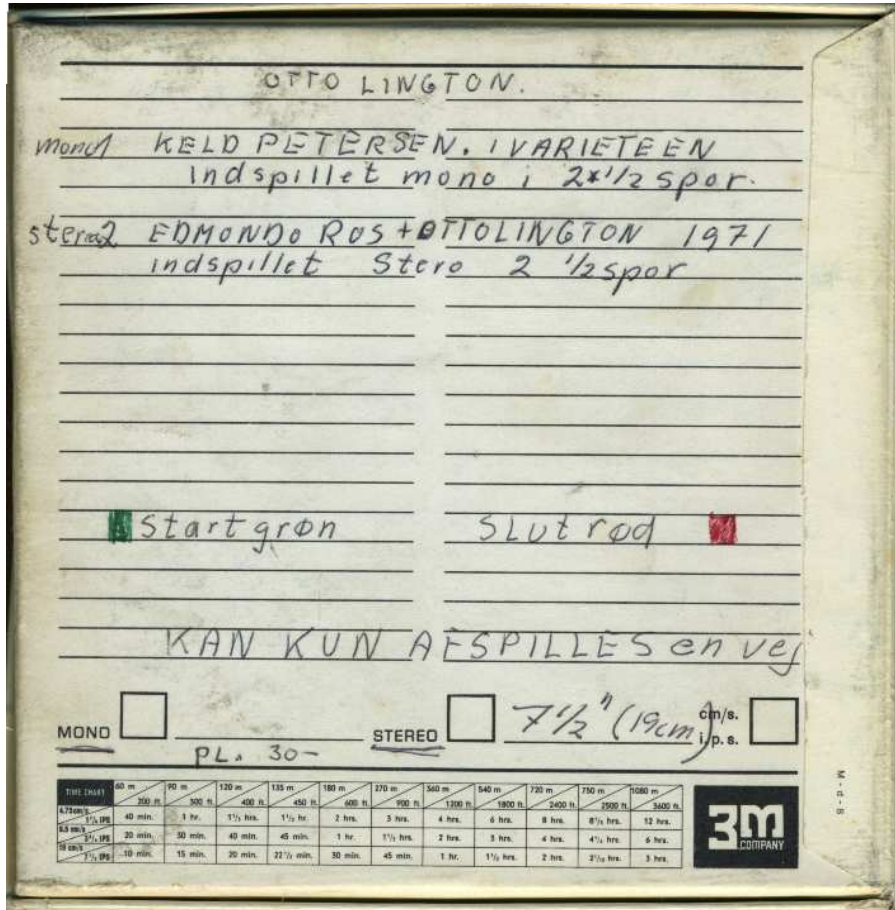 OTTO LINGTON.
mono1 KELD PETERSEN. I VARIETEEN
indspillet mono i 2x1/2 spor.
stero2 EDMONDO ROS + OTTOLINGTON 1971
indspillet Stero 2 1/2 spor
Start grøn SLut rød
KAN KUN AFSPILLES en vej
MONO STEREO 7 1/2" (19cm) cm/s. i.p.s.
PL. 30-
TIME CHART 60 m 200 ft. 90 m 300 ft. 120 m 400 ft. 135 m 450 ft. 180 m 600 ft. 270 m 900 ft. 360 m 1200 ft. 540 m 1800 ft. 720 m 2400 ft. 750 m 2500 ft. 1080 m 3600 ft.
4.75 cm/s 1⅞ IPS 40 min. 1 hr. 1⅓ hrs. 1½ hr. 2 hrs. 3 hrs. 4 hrs. 6 hrs. 8 hrs. 8⅓ hrs. 12 hrs.
9.5 cm/s 3¾ IPS 20 min. 30 min. 40 min. 45 min. 1 hr. 1½ hrs. 2 hrs. 3 hrs. 4 hrs. 4⅙ hrs. 6 hrs.
19 cm/s 7½ IPS 10 min. 15 min. 20 min. 22½ min. 30 min. 45 min. 1 hr. 1½ hrs. 2 hrs. 2¹/₁₂ hrs. 3 hrs.
3M
COMPANY
M-d-8